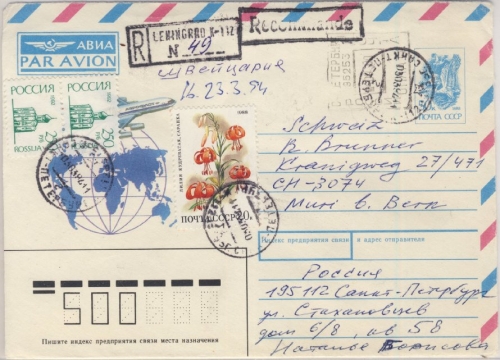 АВИА
PAR AVION
R LENINGRAD X-112
N 49
Recommandé
Швейцария
16.23.3.94
РОССИЯ
РОССИЯ
ROSSIJA
250
250
1988
ПОЧТА СССР
20к
ПОЧТА СССР
Schweiz
B. Brunner
Kranigweg 27/471
CH-3074
Muri b. Bern
Индекс предприятия связи и адрес отправителя
Россия
195112 Санкт-Петербург
ул. Стахановцев
дом 6/8, кв 58
Наталье Борисовна
500
Пишите индекс предприятия связи места назначения